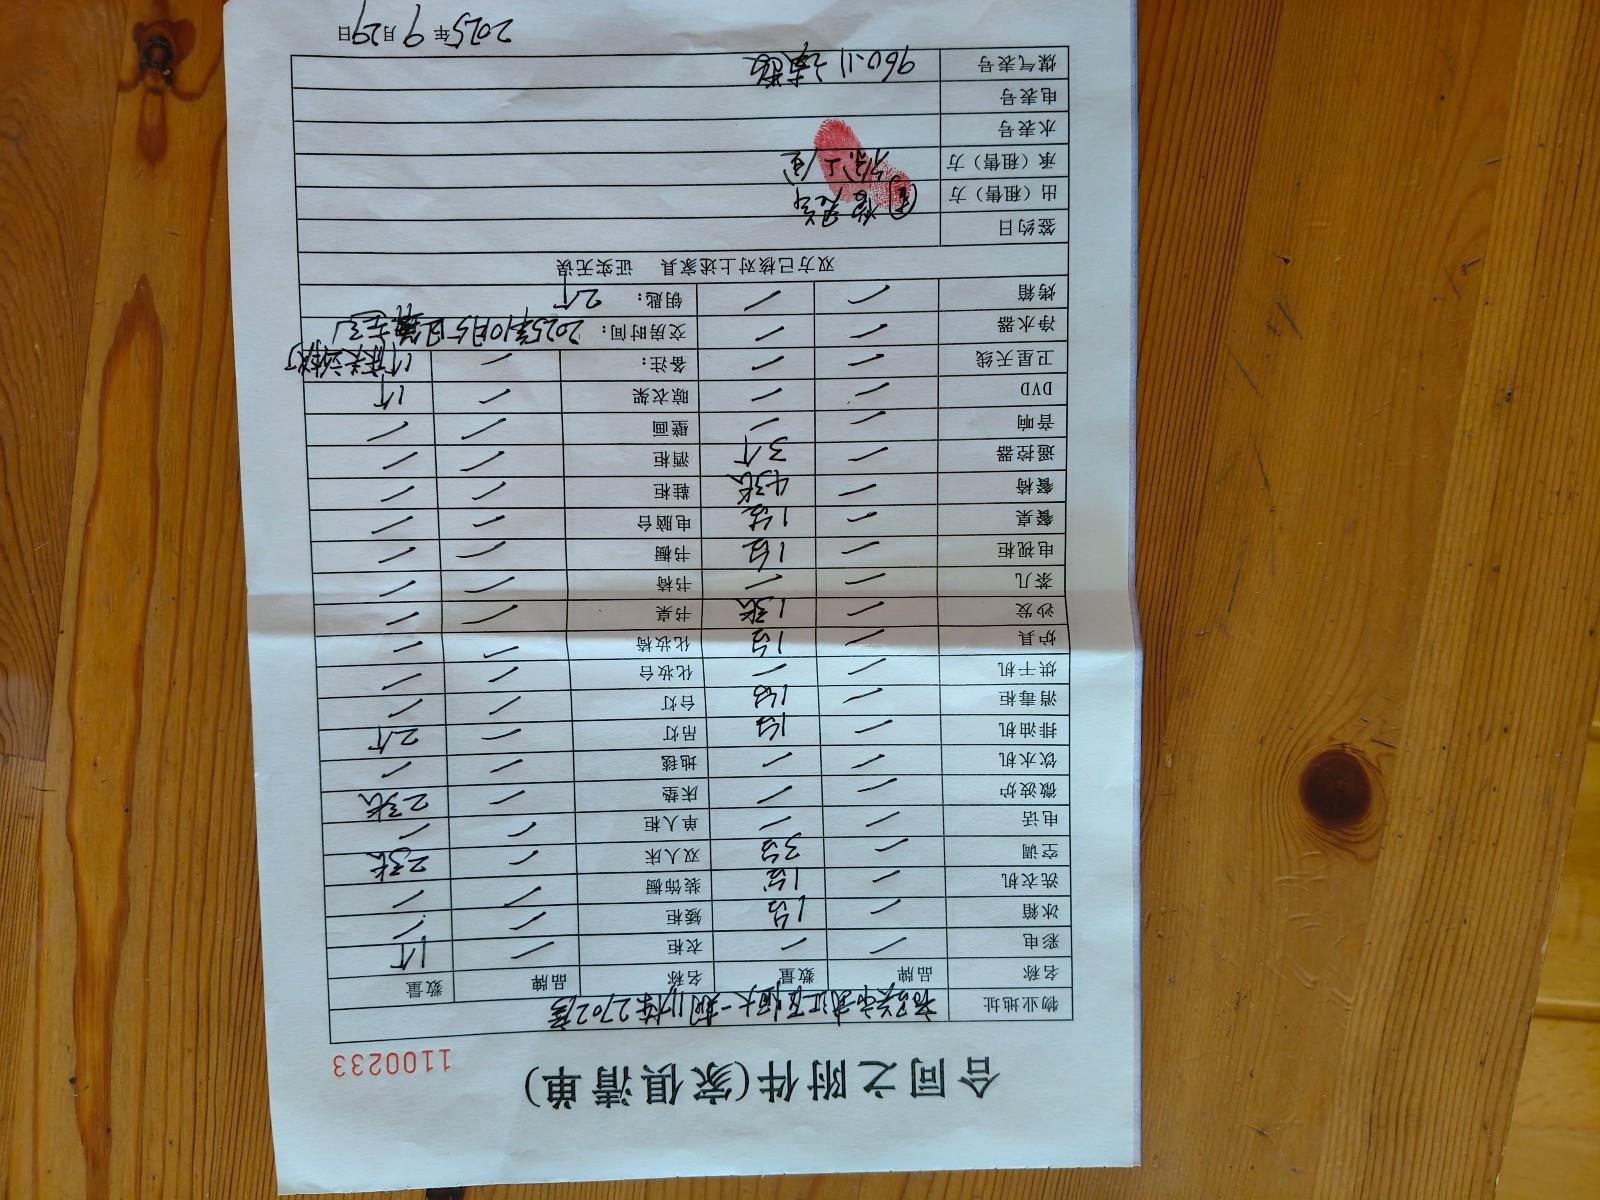 合同之附件(家俱清单)
1100233
物业地址 韶关市武江区恒大一期11栋2702房
名称 品牌 数量 名称 品牌 数量
彩电 / / 衣柜 / 1个
冰箱 / 1台 矮柜 / /
洗衣机 / 1台 装饰橱 / /
空调 / 3台 双人床 / 2张
电话 / / 单人柜 / /
微波炉 / / 床垫 / 2张
饮水机 / / 地毯 / /
排油机 / 1台 吊灯 / 2个
消毒柜 / 1台 台灯 / /
烘干机 / / 化妆台 / /
炉具 / 1台 化妆椅 / /
沙发 / 1张 书桌 / /
茶几 / / 书椅 / /
电视柜 / 1台 书橱 / /
餐桌 / 1台 电脑台 / /
餐椅 / 4张 鞋柜 / /
遥控器 / 3个 酒柜 / /
音响 / / 壁画 / /
DVD / / 晾衣架 / 1个
卫星天线 / / 备注: / 1个床头
净水器 / / 交房时间: 2025年10月5日
烤箱 / / 钥匙: 2个
双方已核对上述家具 证实无误
签约日
出(租售)方
承(租售)方
水表号
电表号
煤气表号 960.11 读数
2025年9月29日